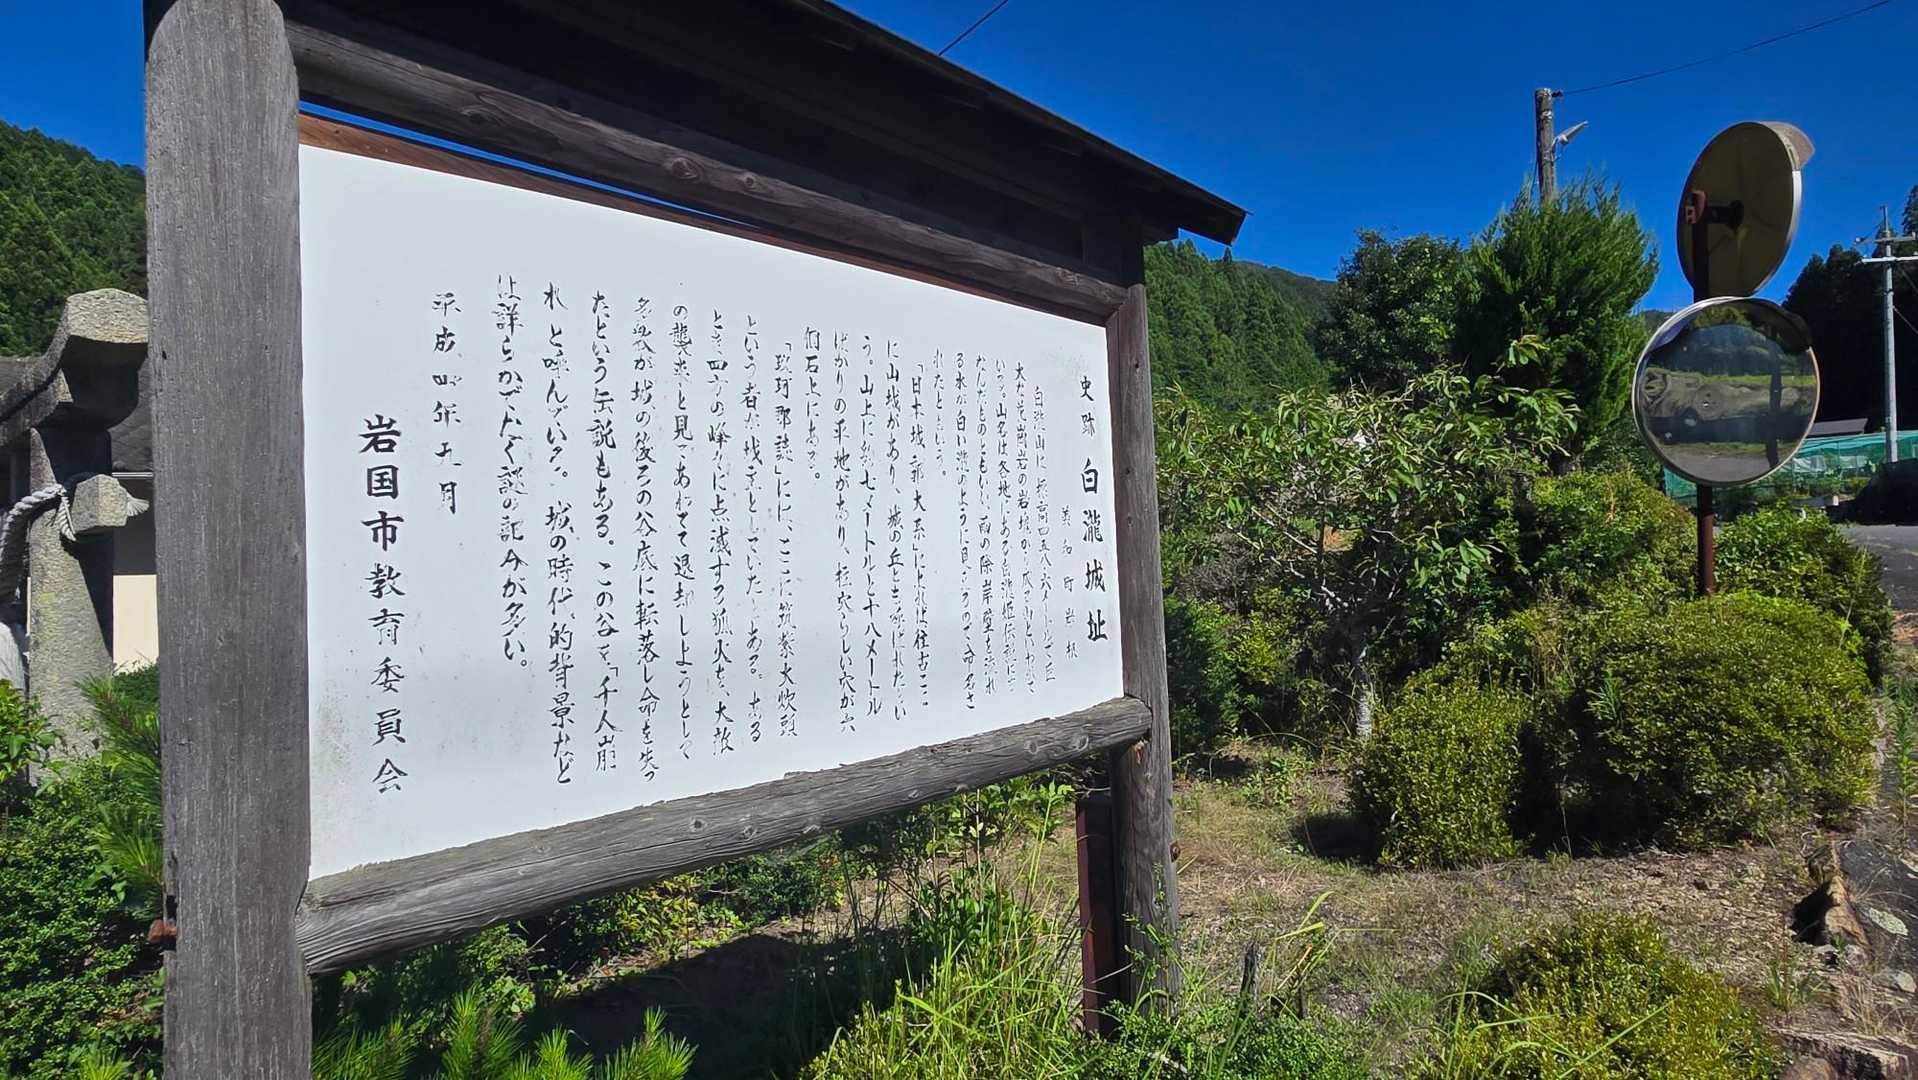 史跡 白瀧城址
美和町岩根
白滝山は標高四五八・六メートルで
大な 岩の岩 山と
山名は各地にある白滝姫伝説に
なんだものともいい、雨の際岸壁を流れ
る水が白い滝のように見えるので命名さ
れたという。
「日本城郭大系」によれば往古ここ
に山城があり、城の丘と呼ばれたとい
う。山上に約七メートルと十八メートル
ばかりの平地があり、柱穴らしい穴が六
個石上にある。
「玖珂郡誌」には、ここに筑紫大炊頭
という者が城主としていたとある。ある
とき四方の峰々に点滅する狐火を、大敵
の襲来と見てあわてて退却しようとして
多数が城の後ろの谷底に転落し命を失っ
たという伝説もある。この谷を「千人崩
れ」と呼んでいる。城の時代的背景など
は詳らかでなく謎の部分が多い。
平成四年九月
岩国市教育委員会